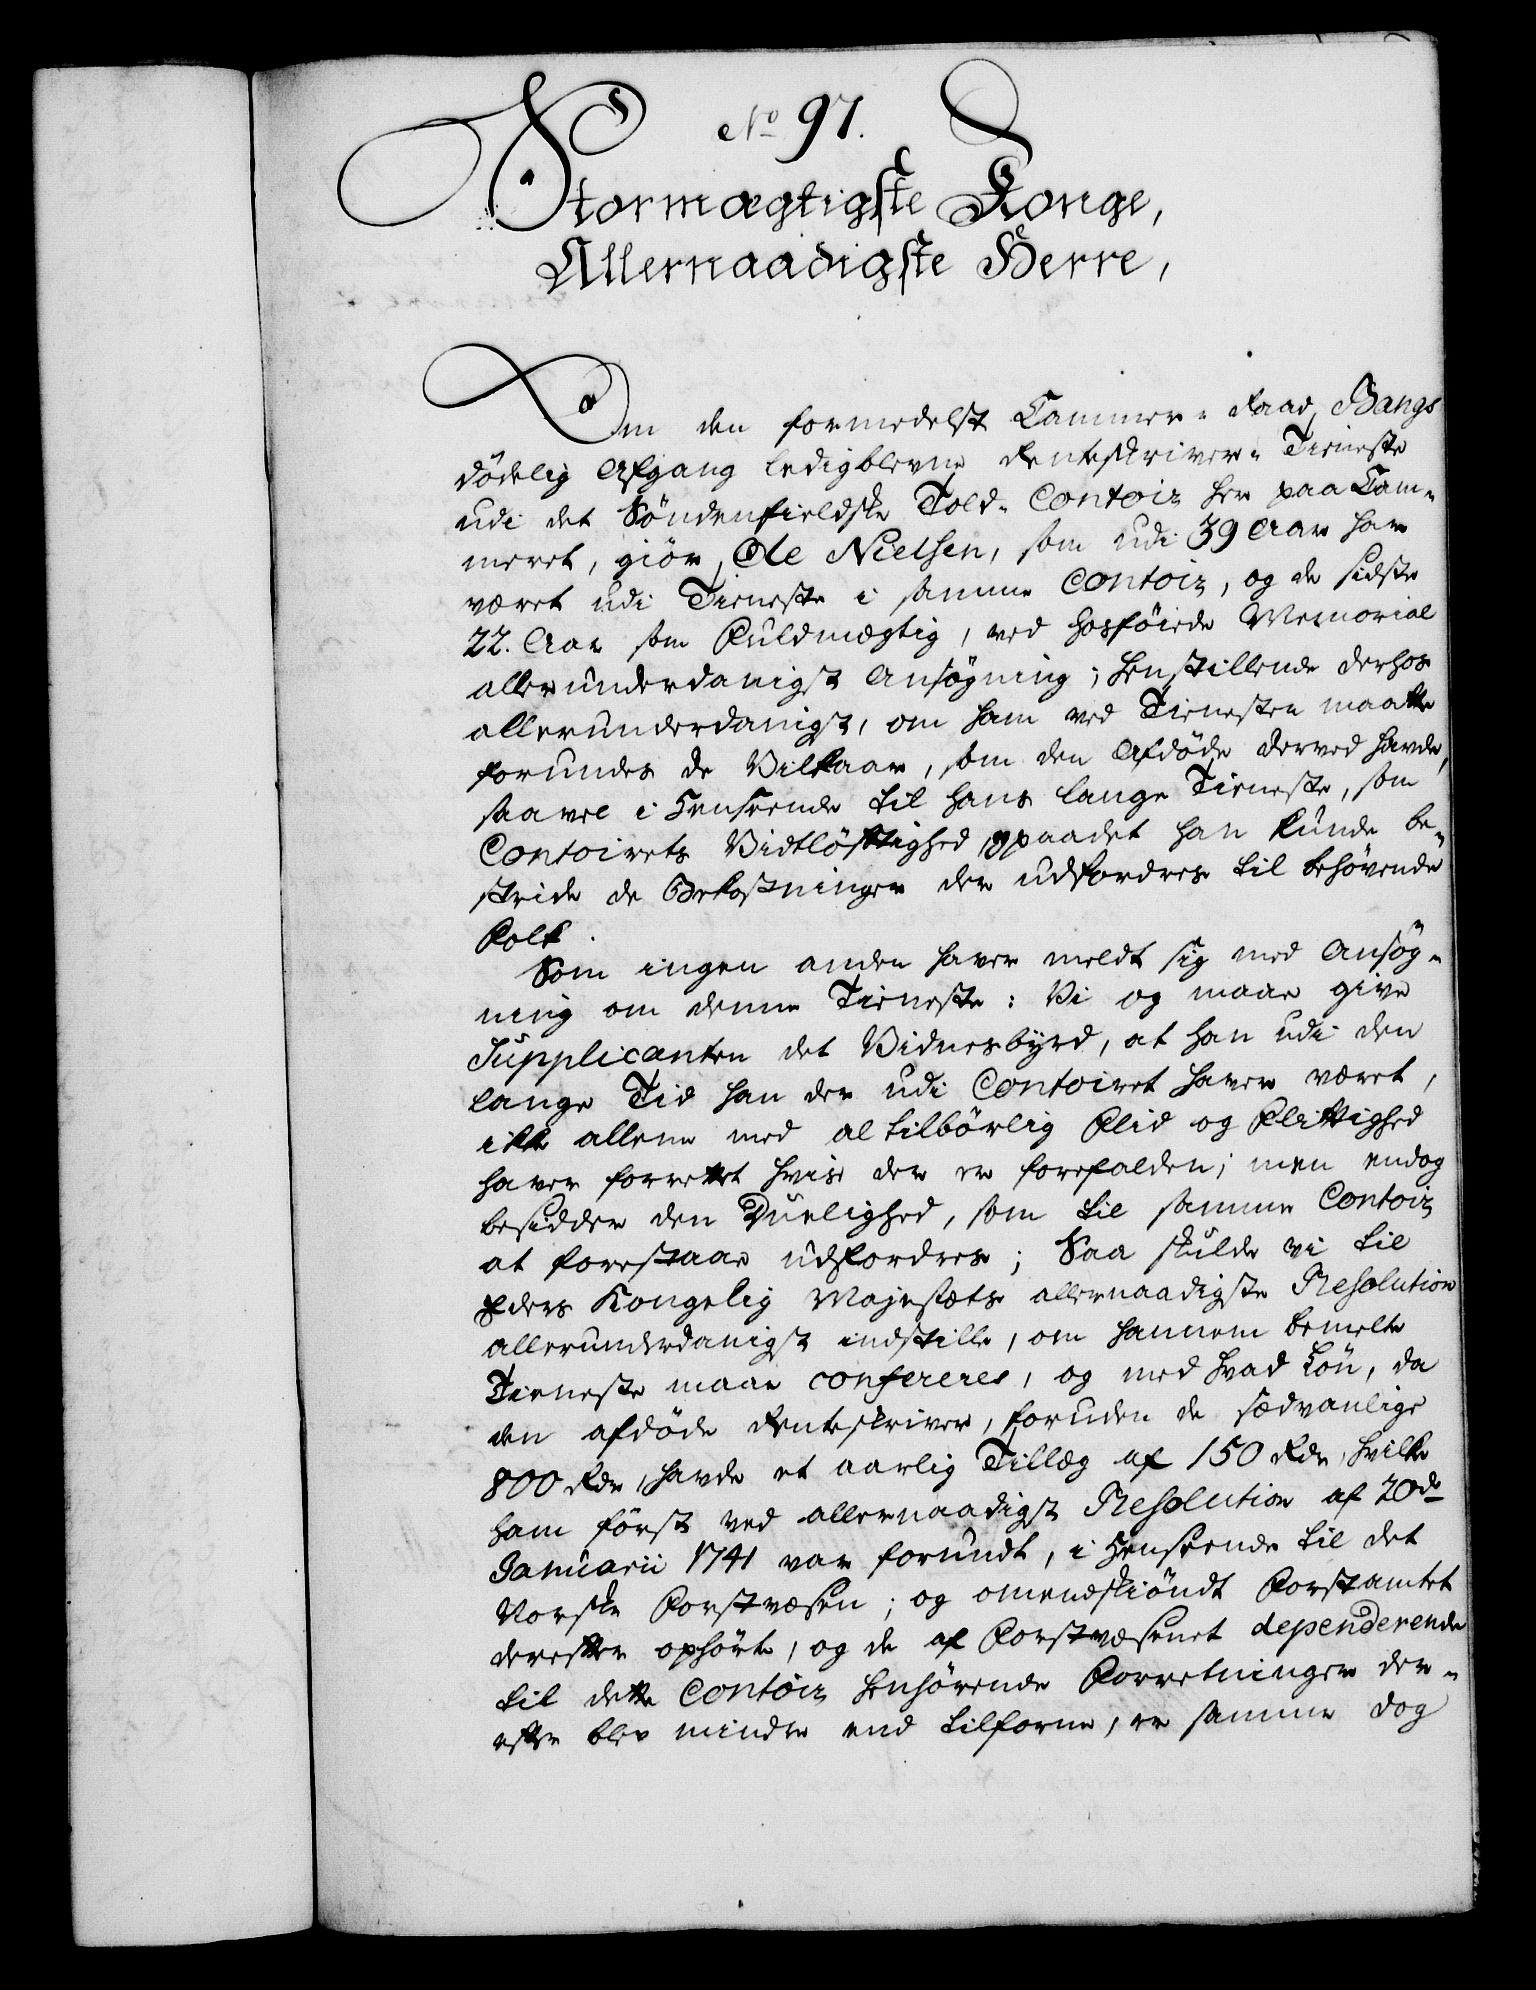 No 97.
Stormægtigste Konge,
Allernaadigste Herre,
Om den formedelst Cammer-Raad Bangs
dödelig Afgang ledigblevne Renteskriver-Tieneste
udi det Söndenfieldske Told-Contoir her paa Cam-
meret, giör, Ole Nielsen, som udi 39 Aar har
været udi Tieneste i samme Contoir, og de sidste
22. Aar som Fuldmægtig, ved hosföiede Memorial
allerunderdanigst Ansögning; henstillende derhos
allerunderdanigst, om ham ved Tienesten maatte
forundes de Vilkaar, som den Afdöde derved havde,
saavel i Henseende til hans lange Tieneste, som
Contoirets Vidtlöftighed, paadet han kunde be-
stride de Bekostninger der udfordres til behövende
Folk.
Som ingen anden haver meldt sig med Ansög-
ning om denne Tieneste: Vi og maae give
Supplicanten det Vidnesbyrd, at han udi den
lange Tid han der udi Contoiret haver været,
ikke allene med al tilbörlig Flid og Flittighed
haver forrettet hvis der er forefalden; men endog
besidder den Duelighed, som til samme Contoir
at forestaae udfordres; Saa skulde vi til
Eders Kongelig Majestæts allernaadigste Resolution
allerunderdanigst indstille, om hannem bemelte
Tieneste maae confereres, og med hvad Lön, da
den afdöde Renteskriver, foruden de sædvanlige
800 Rdr, havde et aarlig Tillæg af 150 Rdr, hvilke
ham först ved allernaadigst Resolution af 20de
Januarii 1741 var forundt, i Henseende til det
Norske Forstvæsen; og omendskiöndt Forstamtet
derefter ophörte, og de af Forstvæsenet dependerende
til dette Contoir henhörende Forretninger der-
efter blev mindre end tilforne, er samme dog